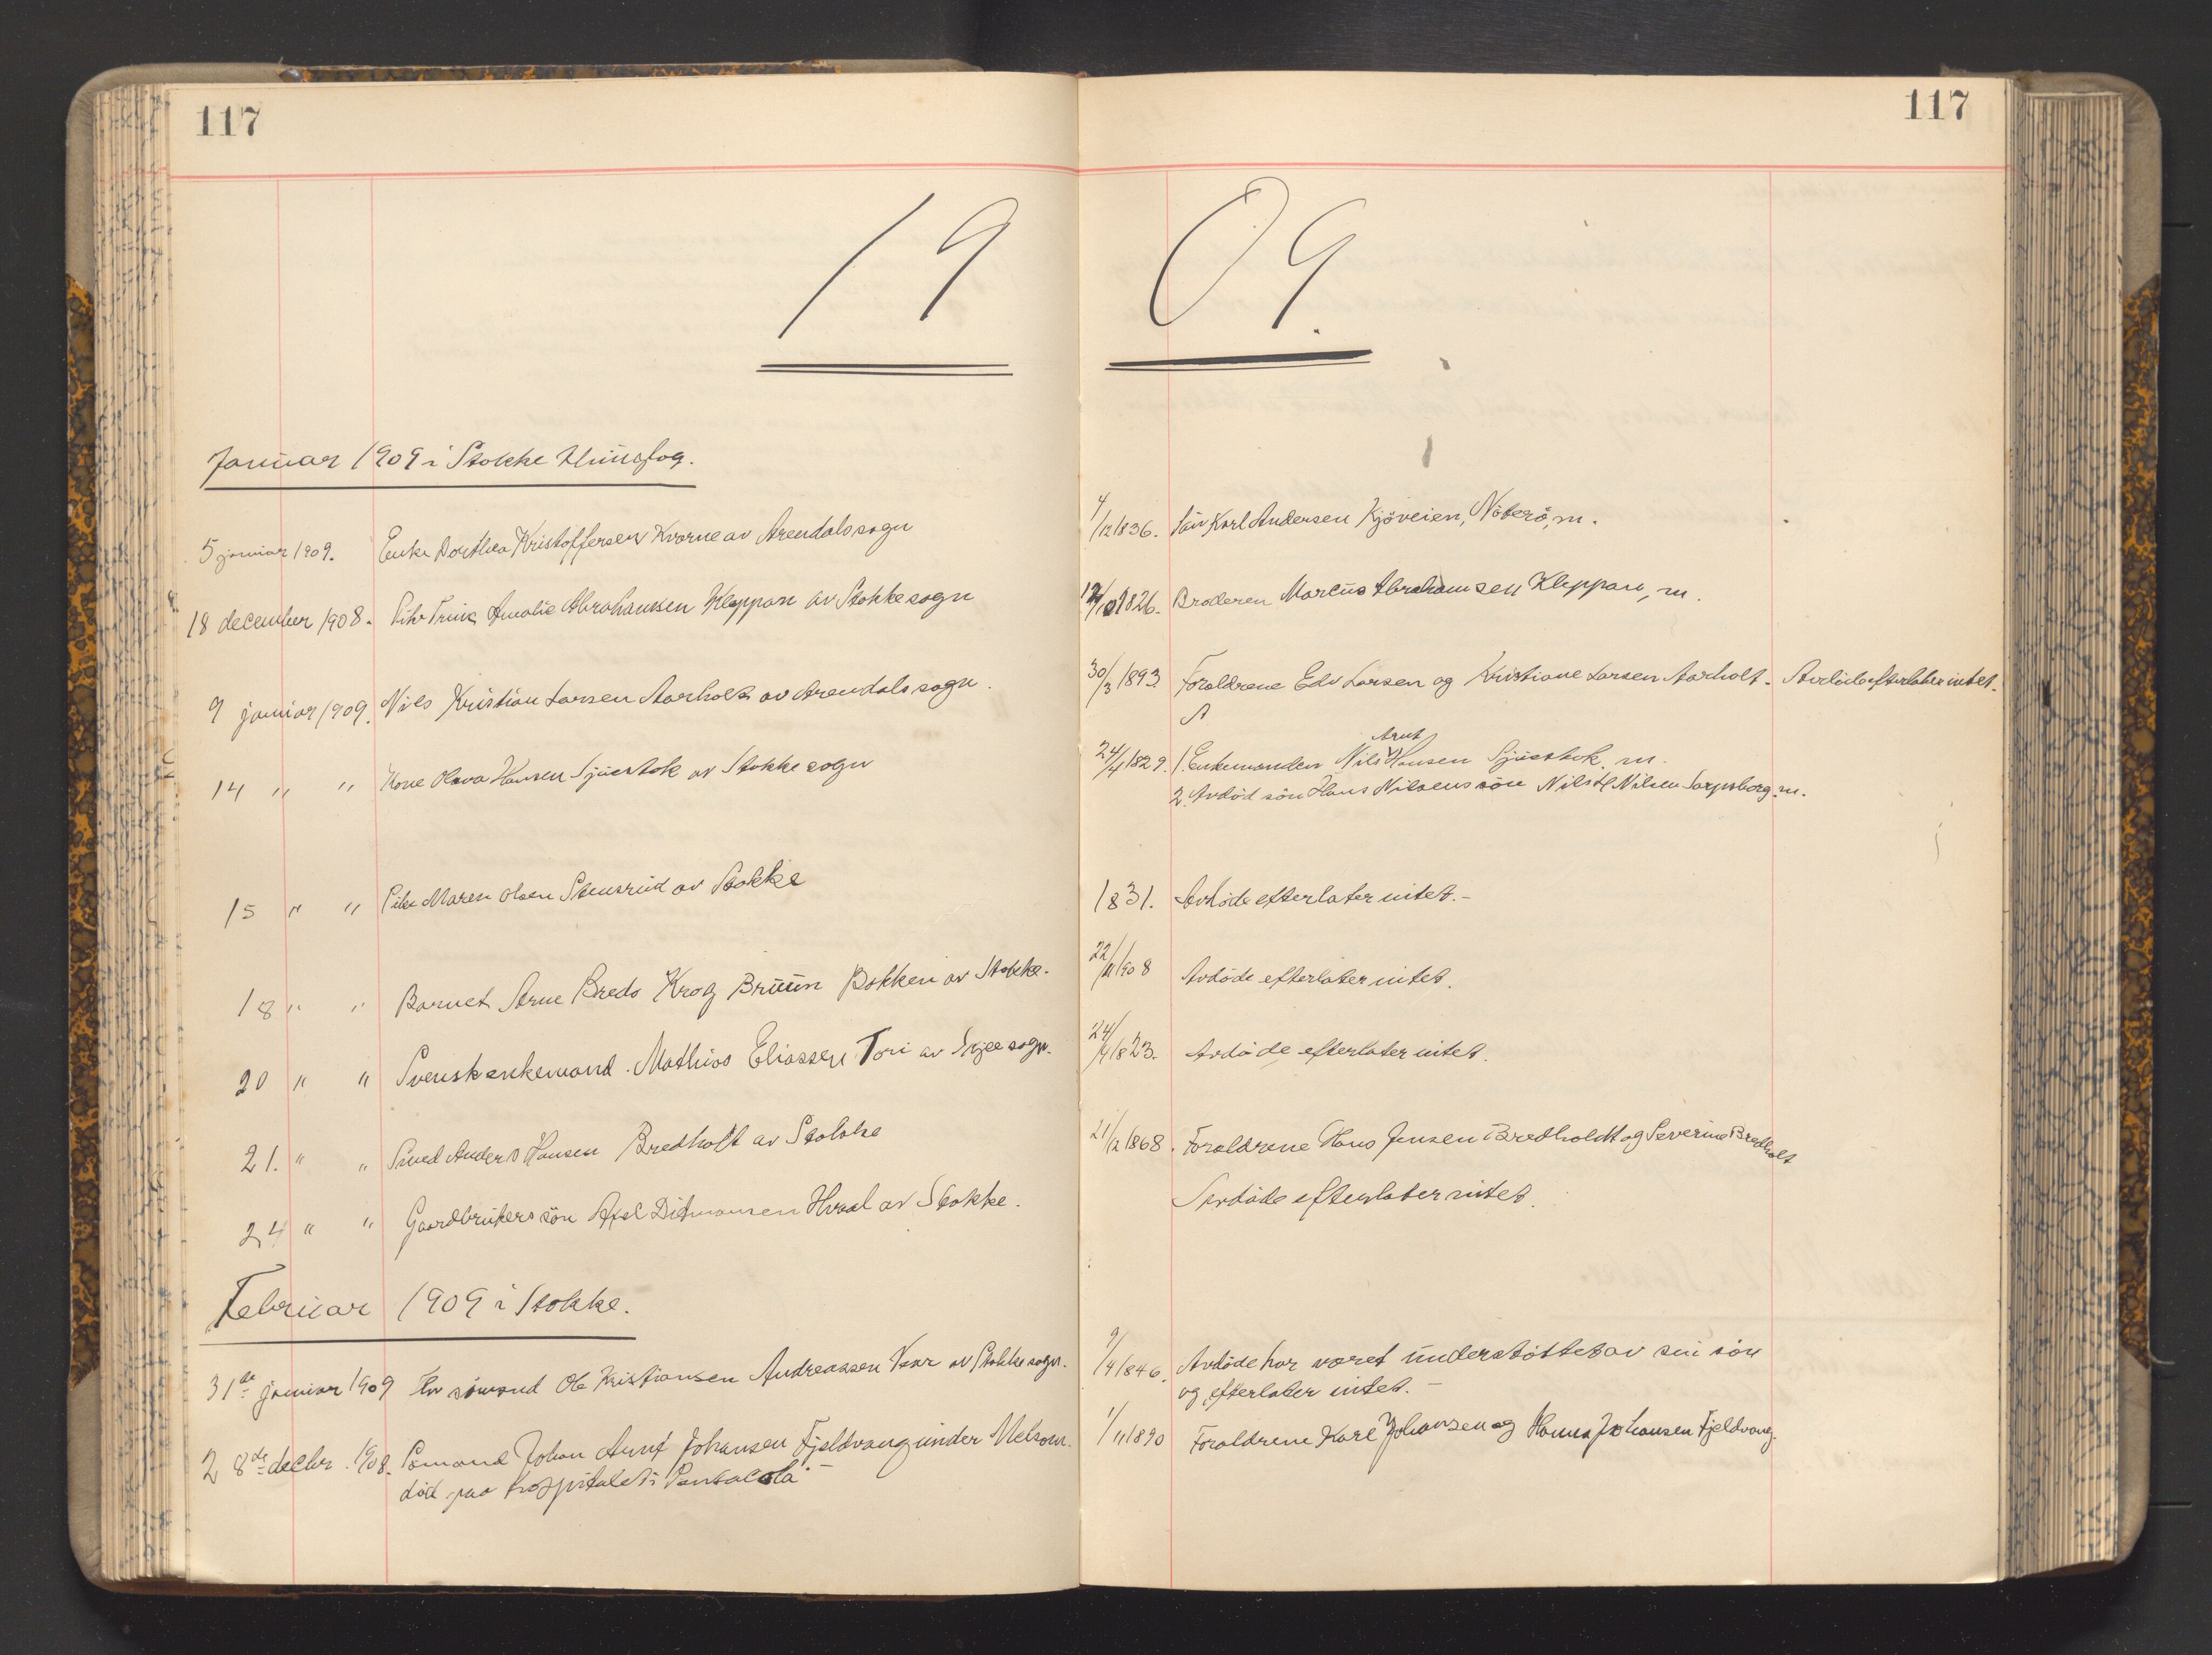 117
117
19 09.
Januar 1909 i Stokke
5 januar 1909. Enke Dorthea Kristoffersen Kvarne av Arendals sogn
4/12 1836. Karl Andersen Kjöveien, Nöterö, m.
18 december 1908. Amalie Abrahamsen Kleppan av Stokke sogn
1826. Broderen Marcus Abrahamsen Kleppan, m.
9 januar 1909. Nils Kristian Larsen Aarholt av Arendals sogn.
30/3 1893. Foraldrene Edv Larsen og Kristiane Larsen Aarholt. Avdöde efterlater intet.
14 " " Kone Olava Hansen Sjuestok av Stokke sogn
24/4 1829. 1. Enkemanden Nils Arnt Hansen Sjuestok. m.
2. Avdöd sön Hans Nilsens sön Nils H Nilsen Sarpsborg m.
15 " " Pike Maren Olsen Stensrud av Stokke
1831. Avdöde efterlater intet.-
18 " " Barnet Arne Bredo Krog Bruun Bokken av Stokke.
22/11 1908 Avdöde efterlater intet.
20 " " Svensk enkemand Mathias Eliassen Tori av Skjee sogn.
24/4 1823. Avdöde efterlater intet.
21. " " Smed Anders Hansen Bredholt av Stokke
21/12 1868. Foraldrene Hans Jensen Bredholdt og Severine Bredholt
24 " " Gaardbrukers sön Axel Ditmansen Hvaal av Stokke.
Avdöde efterlater intet.
Februar 1909 i Stokke.
31te januar 1909 sömand Ole Kristiansen Andreassen Vear av Stokke sogn.
9/4 1846. Avdöde har været understöttet av sin sön
og efterlater intet.-
28de decbr. 1908. Sömand Johan Arnt Johansen Fjeldvang under Melsom.
död paa hospitalet i Pensacola
1/11 1890 Foraldrene Karl Johansen og Hanna Johansen Fjeldvang.